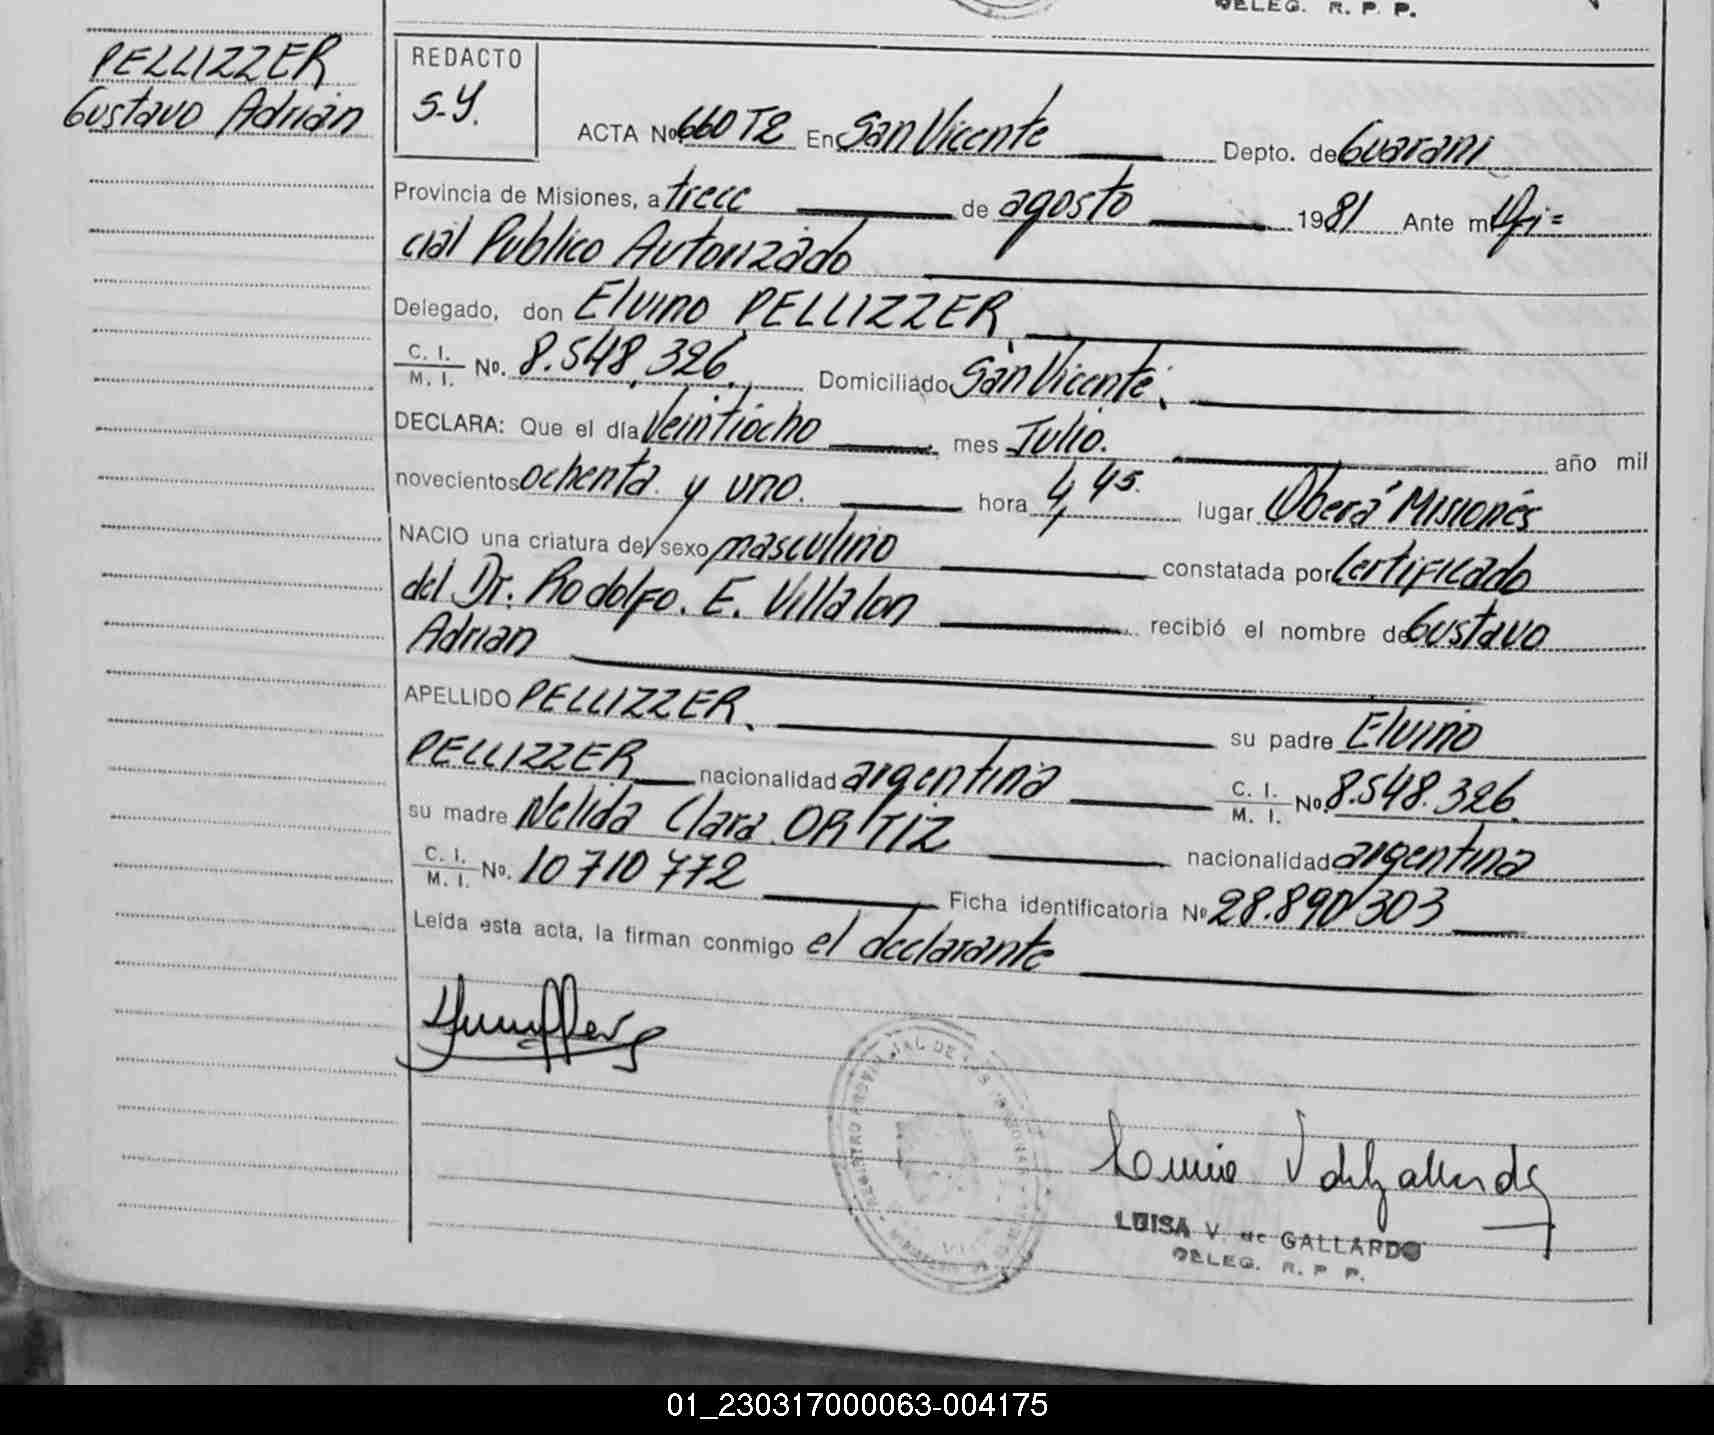 DELEG. R. P. P.
PELLIZZER
Gustavo Adrian
REDACTO
S.Y.
ACTA Nº 660 T2 En San Vicente Depto. de Guarani
Provincia de Misiones, a trece de agosto 1981 Ante mi Ofi=
cial Publico Autorizado
Delegado, don Elvino PELLIZZER
C. I. / M. I. Nº. 8.548.326. Domiciliado San Vicente.
DECLARA: Que el día Veintiocho mes Julio. año mil
novecientos ochenta y uno. hora 4,45. lugar Oberá Misiones
NACIO una criatura del sexo masculino constatada por Certificado
del Dr. Rodolfo. E. Villalon recibió el nombre de Gustavo
Adrian
APELLIDO PELLIZZER su padre Elvino
PELLIZZER nacionalidad argentina C. I. / M. I. Nº 8.548.326.
su madre Nelida Clara ORTIZ nacionalidad argentina
C. I. / M. I. Nº. 10 710 772 Ficha identificatoria Nº 28.890/303
Leída esta acta, la firman conmigo el declarante
LUISA V. de GALLARDO
DELEG. R. P. P.
01_230317000063-004175